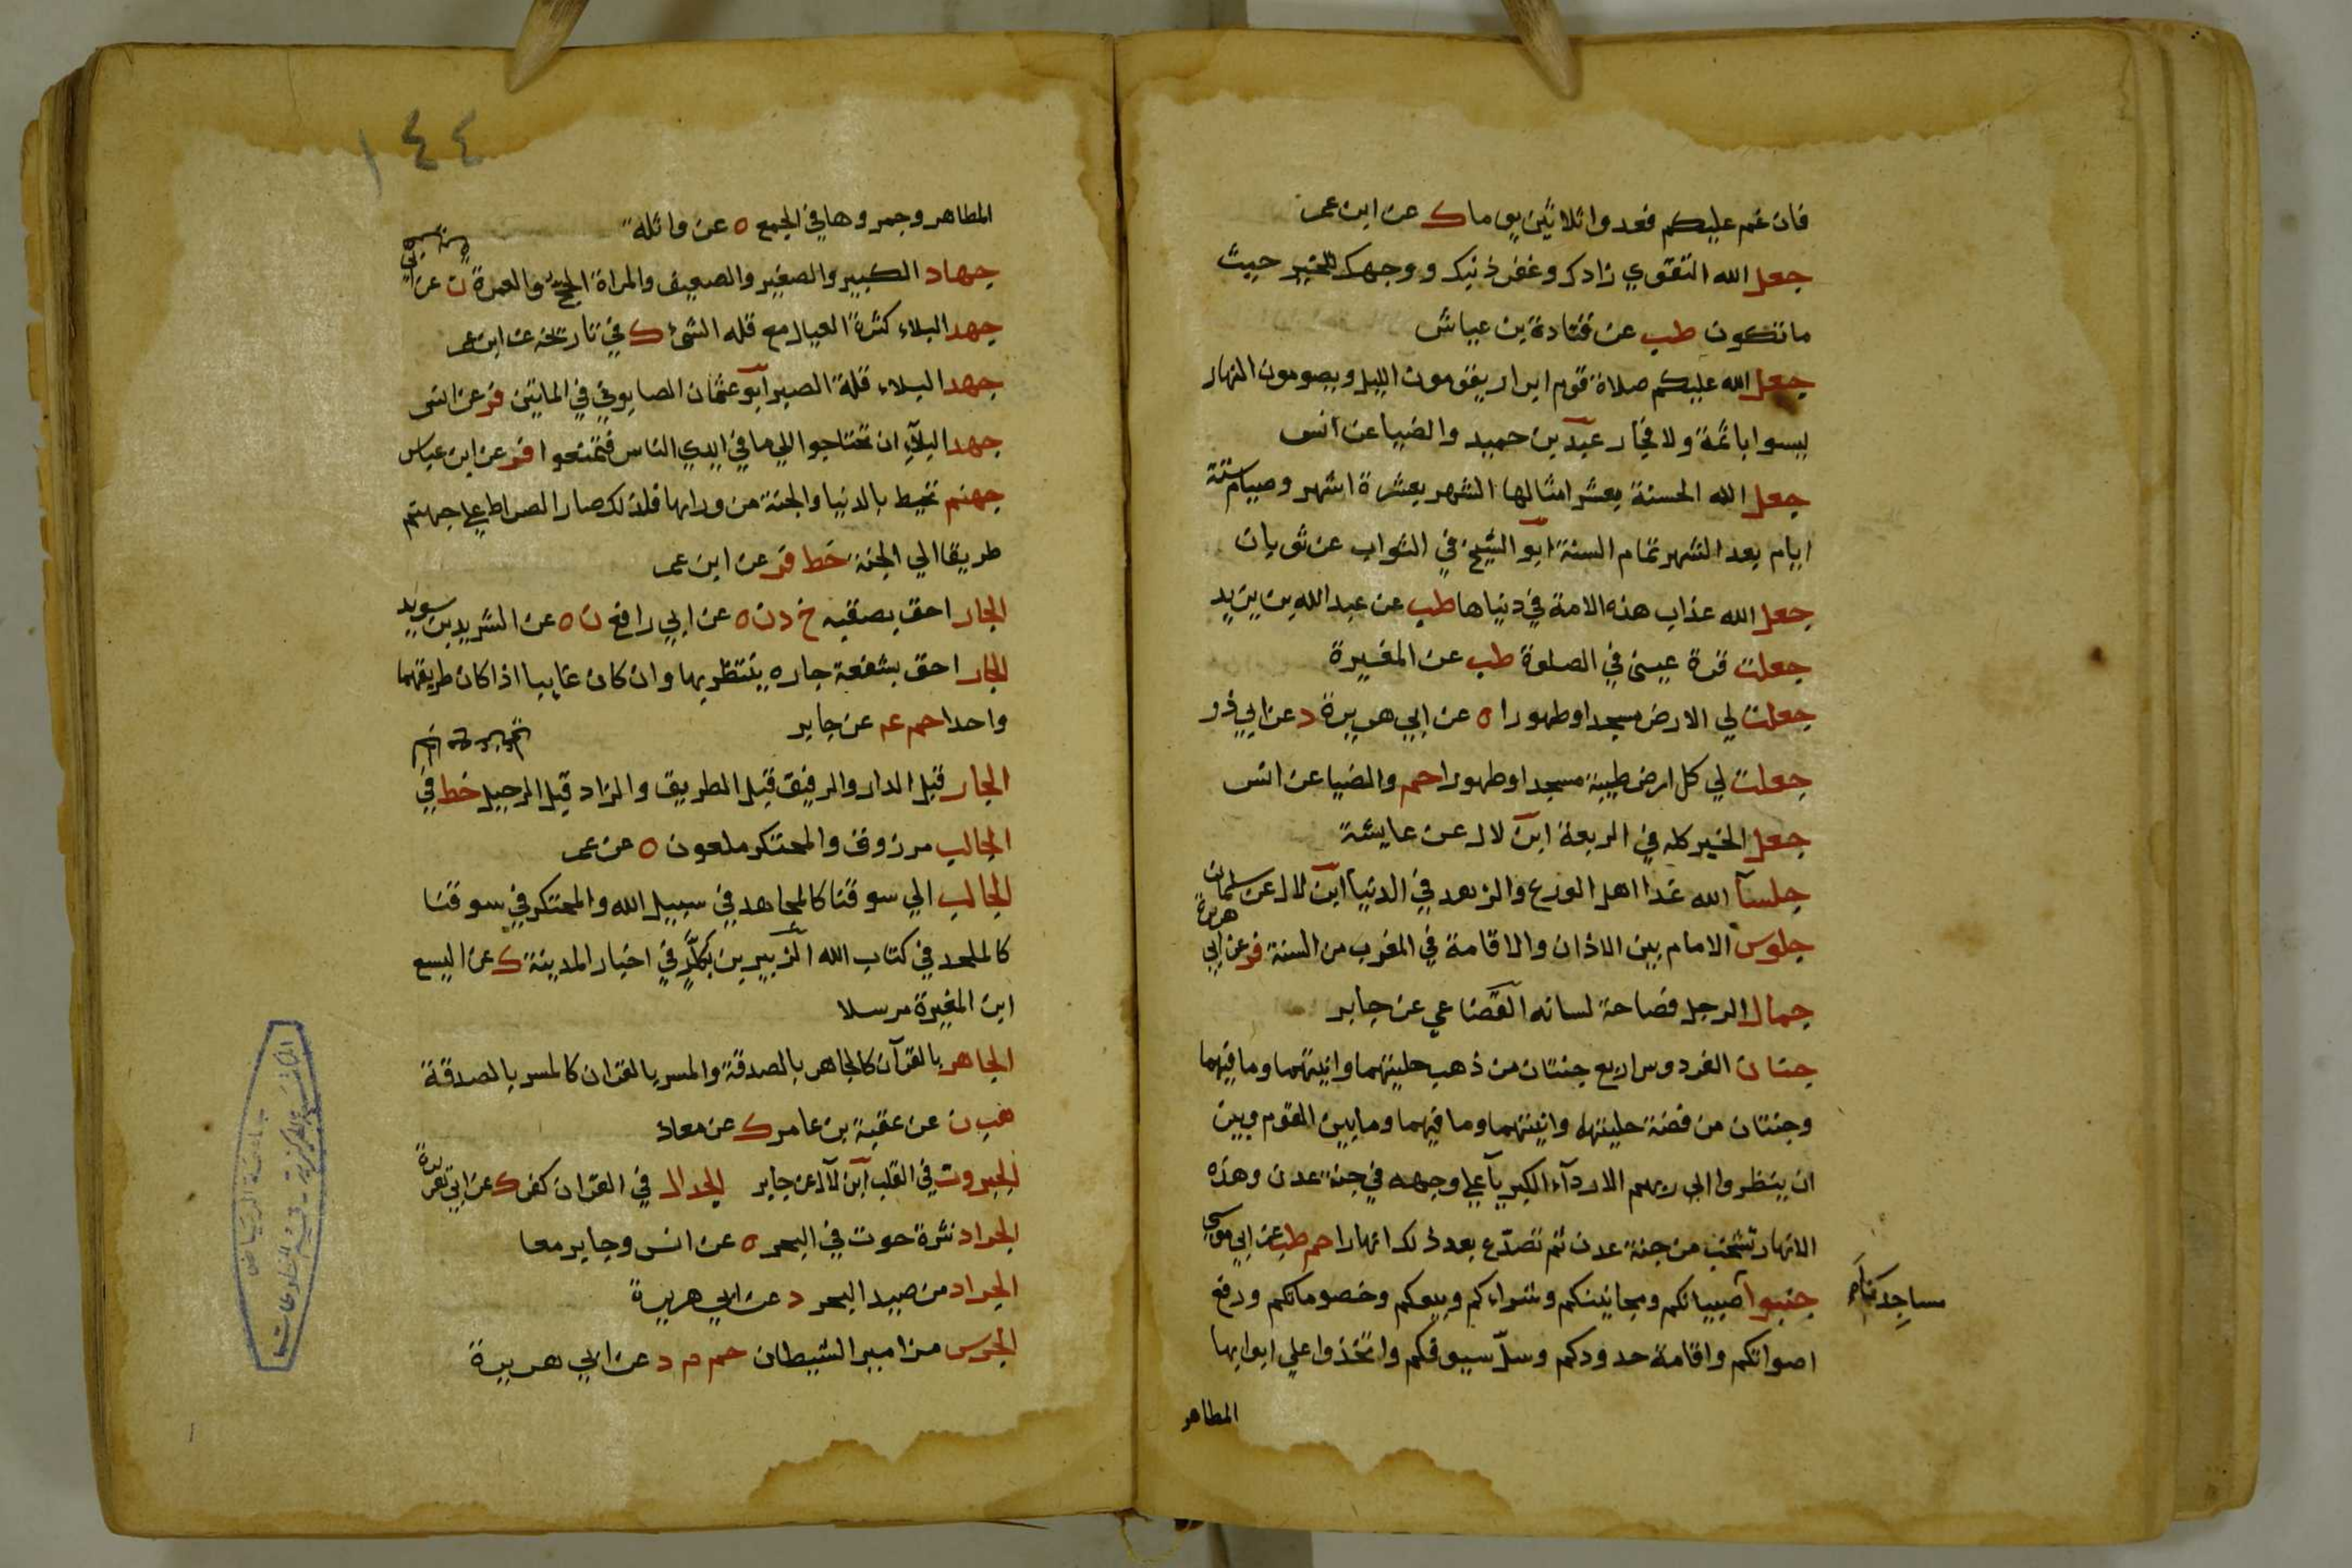 فان غم عليكم فعدوا ثلاثين يوما ك عن ابن عمر
جعل الله التقوي زادك وغفر ذنبك ووجهك للخير حيث
ما تكون طب عن قتادة بن عياش
جعل الله عليكم صلاة قوم ابرار يقومون الليل ويصومون النهار
ليسوا باثمة ولا فجار عبد بن حميد والضيا عن انس
جعل الله الحسنة بعشر امثالها الشهر بعشرة اشهر وصيام ستة
ايام بعد الشهر تمام السنة ابو الشيخ في الثواب عن ثوبان
جعل الله عذاب هذه الامة في دنياها طب عن عبد الله بن يزيد
جعلت قرة عيني في الصلوة طب عن المغيرة
جعلت لي الارض مسجدا وطهورا ه عن ابي هريرة د عن ابي ذر
جعلت لي كل ارض طيبة مسجدا وطهورا حم والضيا عن انس
جعل الخير كله في الربعة ابن لال عن عايشة
جلسآ الله غدا اهل الورع والزهد في الدنيا ابن لال عن سلمان
جلوس الامام بين الاذان والاقامة في المغرب من السنة فر عن ابي هريرة
جمال الرجل فصاحة لسانه القضاعي عن جابر
جنان الفردوس اربع جنتان من ذهب حليتهما وانيتهما وما فيهما
وجنتان من فضة حليتهما وانيتهما وما فيهما وما بين القوم وبين
ان ينظروا الي ربهم الا ردآء الكبريآ علي وجهه في جنة عدن وهذه
الانهار تشخب من جنة عدن ثم تصدّع بعد ذلك انهارا حم طب عن ابي موسي
جنبوا صبيانكم ومجانينكم وشراءكم وبيعكم وخصوماتكم ورفع
مساجدنا
اصواتكم واقامة حدودكم وسلّ سيوفكم واتخذوا علي ابوابها
المطاهر
١٤٤
المطاهر وجمروها في الجمع ه عن واثلة
جهاد الكبير والصغير والضعيف والمراة الحج والعمرة ن عن ابي هريرة
جهد البلاء كثرة العيال مع قلة الشئ ك في تاريخه عن ابن عمر
جهد البلاء قلة الصبر ابو عثمان الصابوني في المايتين فر عن انس
جهد البلآء ان تحتاجوا الي ما في ايدي الناس فتمنعوا فر عن ابن عباس
جهنم تحيط بالدنيا والجنة من ورايها فلذلك صار الصراط علي جهنم
طريقا الي الجنة خط فر عن ابن عمر
الجار احق بصقبه خ د ن ه عن ابي رافع ن ه عن الشريد بن سويد
الجار احق بشفعة جاره ينتظر بها وان كان غايبا اذا كان طريقهما
واحدا حم عم عن جابر
الجار قبل الدار والرفيق قبل الطريق والزاد قبل الرحيل خط في
الجالب مرزوق والمحتكر ملعون ه عن عمر
الجالب الي سوقنا كالمجاهد في سبيل الله والمحتكر في سوقنا
كالملحد في كتاب الله الزبير بن بكار في اخبار المدينة ك عن اليسع
ابن المغيرة مرسلا
الجاهر بالقرآن كالجاهر بالصدقة والمسر بالقران كالمسر بالصدقة
هب ن عن عقبة بن عامر ك عن معاذ
الجبروت في القلب ابن لال عن جابر الجدال في القران كفر ك عن ابي هريرة
الجراد نثرة حوت في البحر ه عن انس وجابر معا
الجراد من صيد البحر د عن ابي هريرة
الجرس مزامير الشيطان حم م د عن ابي هريرة